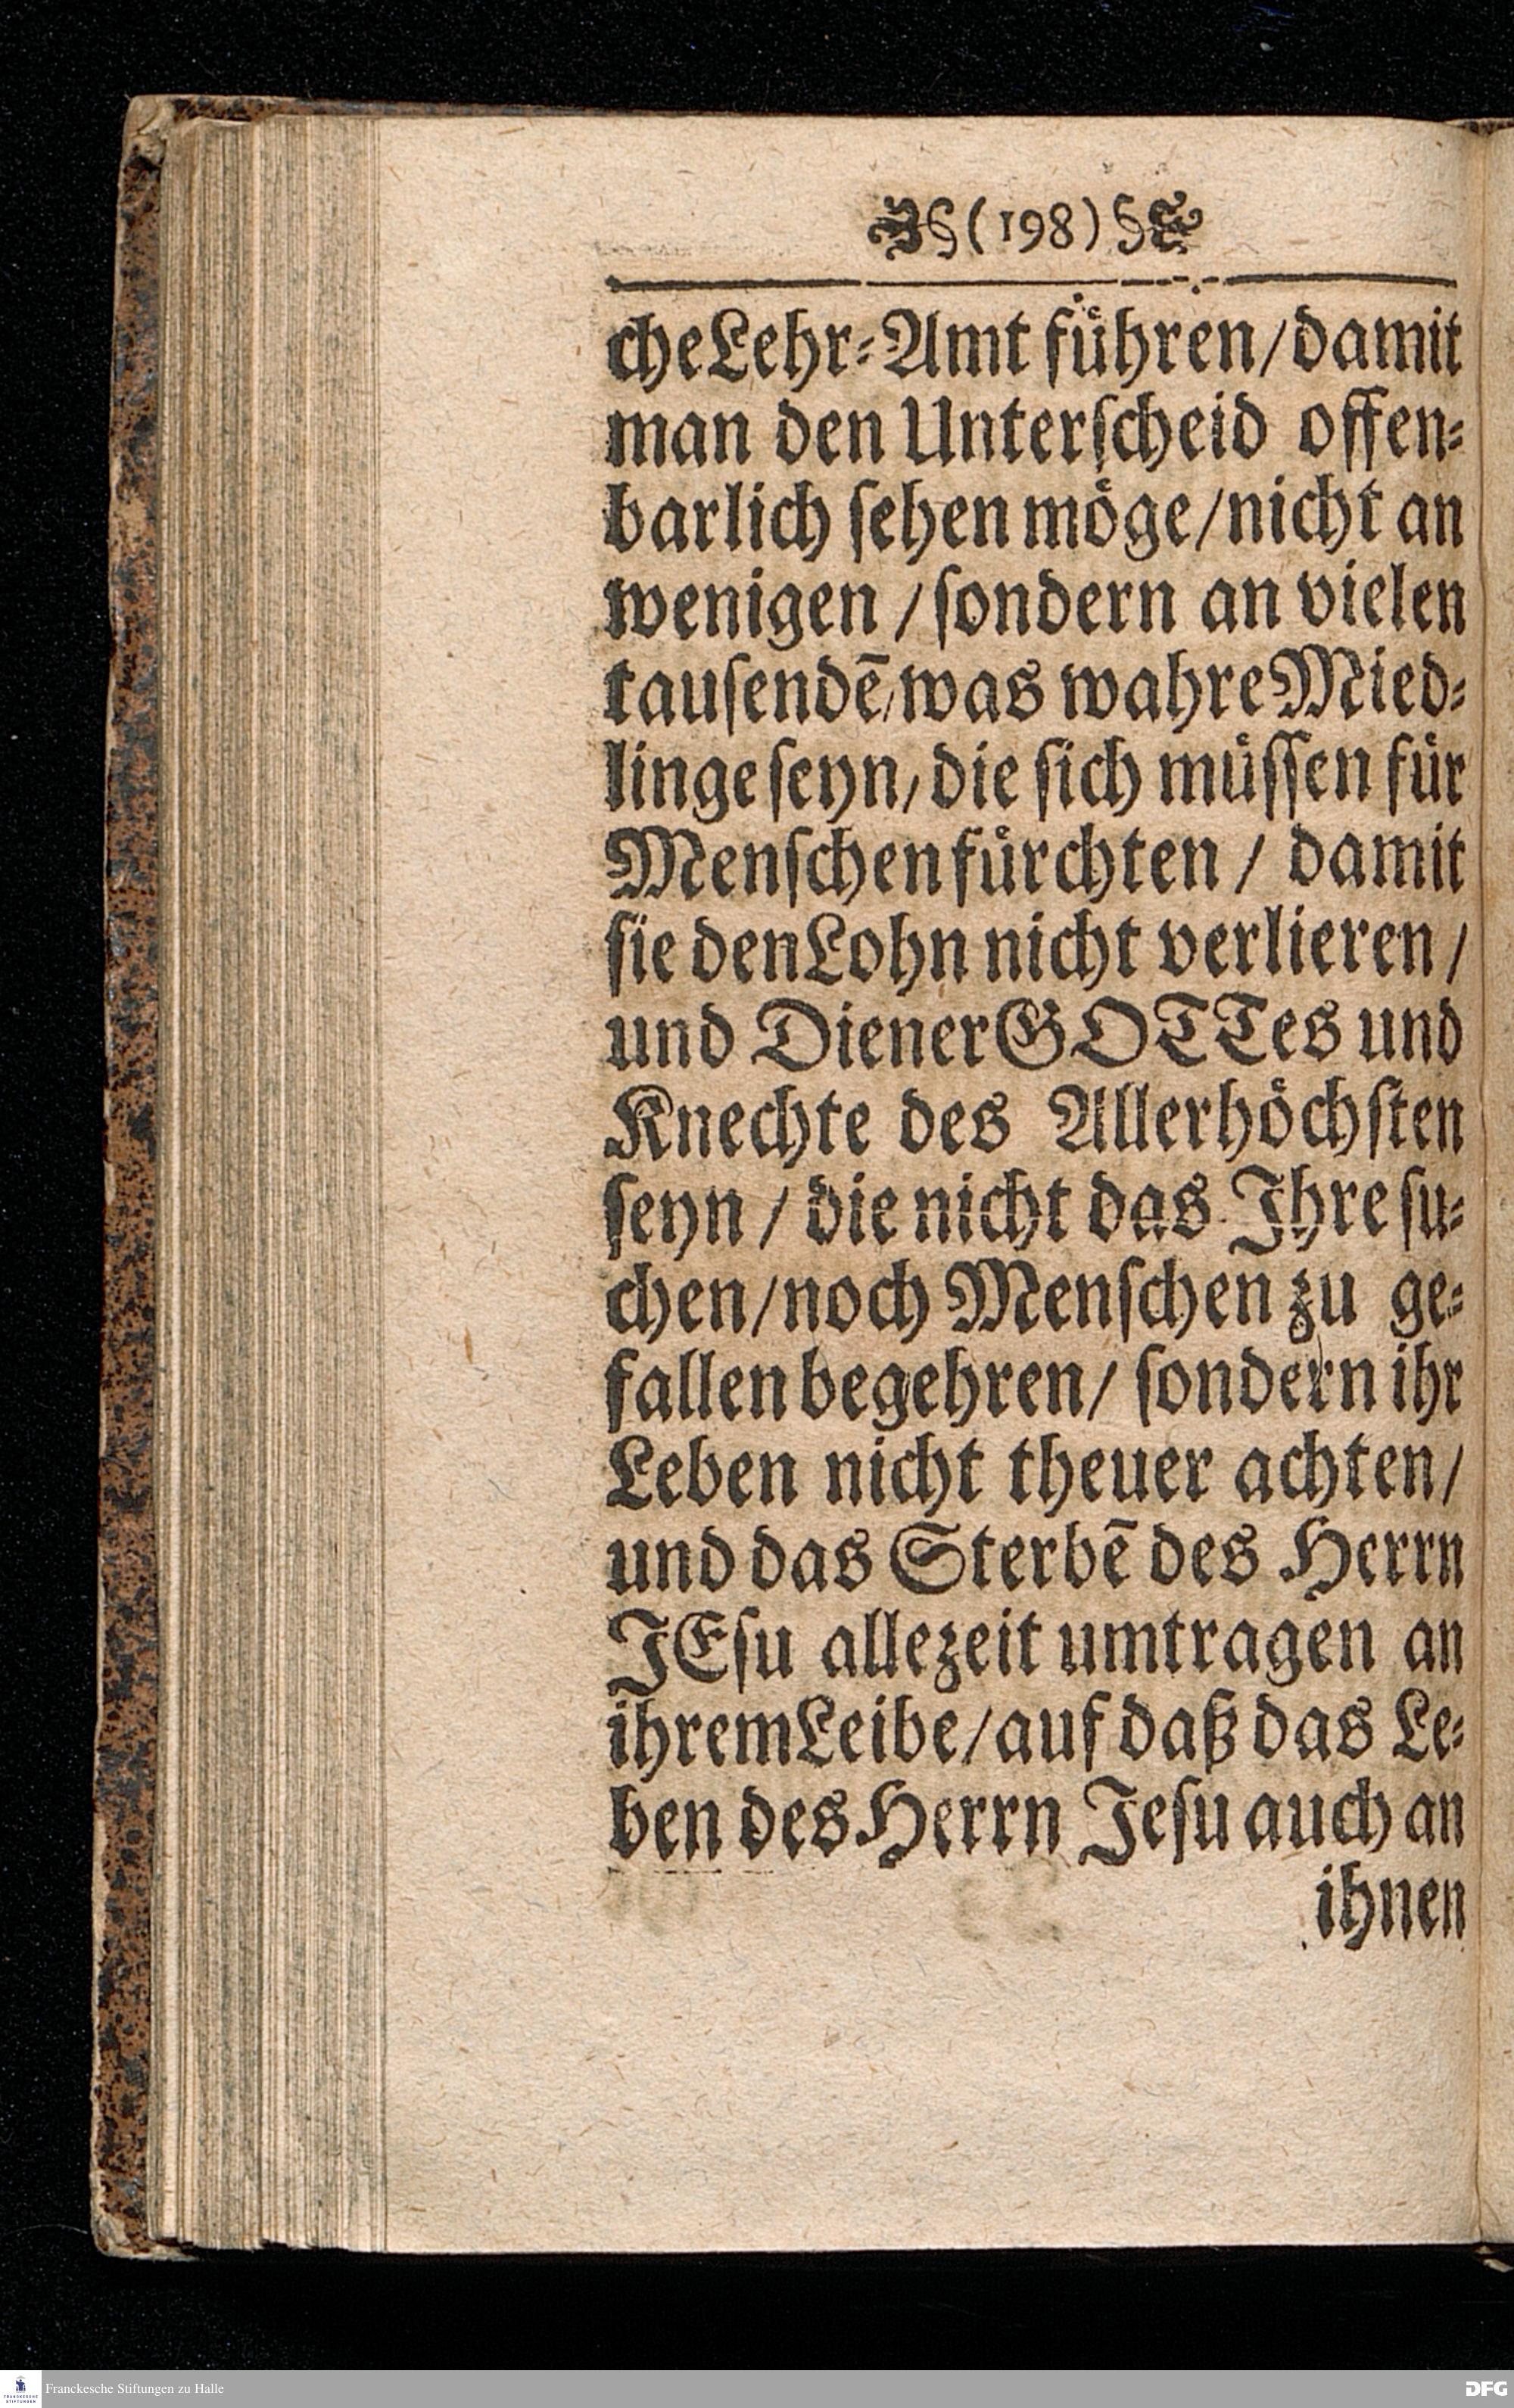 §(198)§
che Lehr-Amt fuͤhren/damit
man den Unterſcheid offen-
barlich ſehen moͤge/nicht an
wenigen / ſondern an vielen
tauſendē/was wahre Mied-
linge ſeyn/ die ſich muͤſſen fuͤr
Menſchen fuͤrchten / damit
ſie den Lohn nicht verlieren/
und Diener GOTTes und
Knechte des Allerhoͤchſten
ſeyn / die nicht das Ihre ſu-
chen/noch Menſchen zu ge-
fallen begehren/ ſondern ihr
Leben nicht theuer achten/
und das Sterbē des Herrn
JEſu allezeit umtragen an
ihrem Leibe/auf daß das Le-
ben des Herrn Jeſu auch an
ihnen
Franckesche Stiftungen zu Halle
FRANCKESCHE STIFTUNGEN
DFG